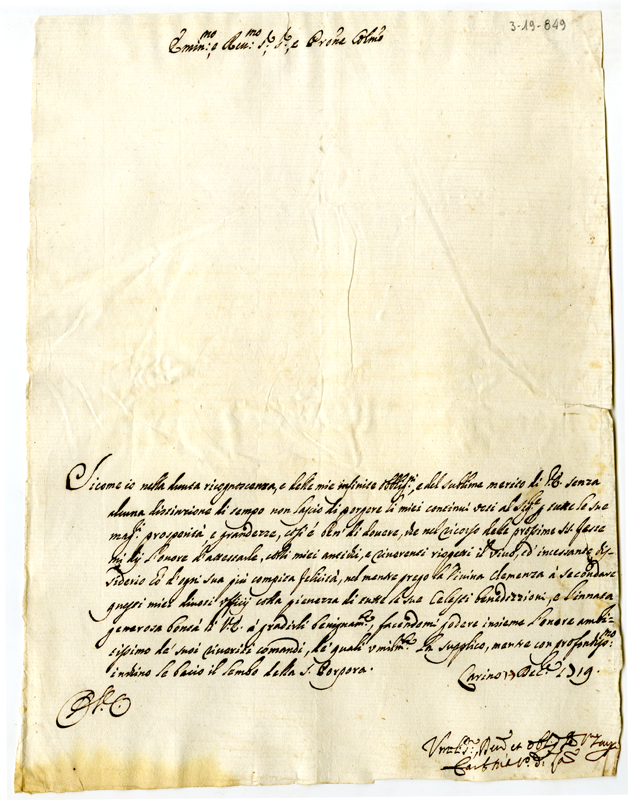 3-19-849
Emin:mo e Reu:mo Sr, Sr, e Prone Colmo
Sicome io nella douuta ricognoscenza, e delle mie infinite obblig:ni, e del sublime merito di V.E. senza
alcuna distinzione di tempo non lascio di porgere li miei continui voti al per tutte le sue
mag:ri prosperità e grandezze, così è ben di douere, che nel ricorso delle prossime Ste feste
mi dij l'onore d'attestarle, cogli miei ansiosi, e riuerenti il viuo, ed incessante de,,
siderio d'ogni sua più compita felicità, nel mentre prego la Diuina Clemenza à secondare
questi miei diuoti vfficij colla pienezza di tutte le sue Celesti benedizzioni, e l'innata
generosa bontà di V.E. à gradirli benignam:te, facendomi godere insieme l'onore ambi,,
tissimo de' suoi riueriti comandi, de' quali vmilm:te La supplico, mentre con profondiss:mo
inchino le bacio il lembo della S. Porpora.
Carino Dec:e 1719.